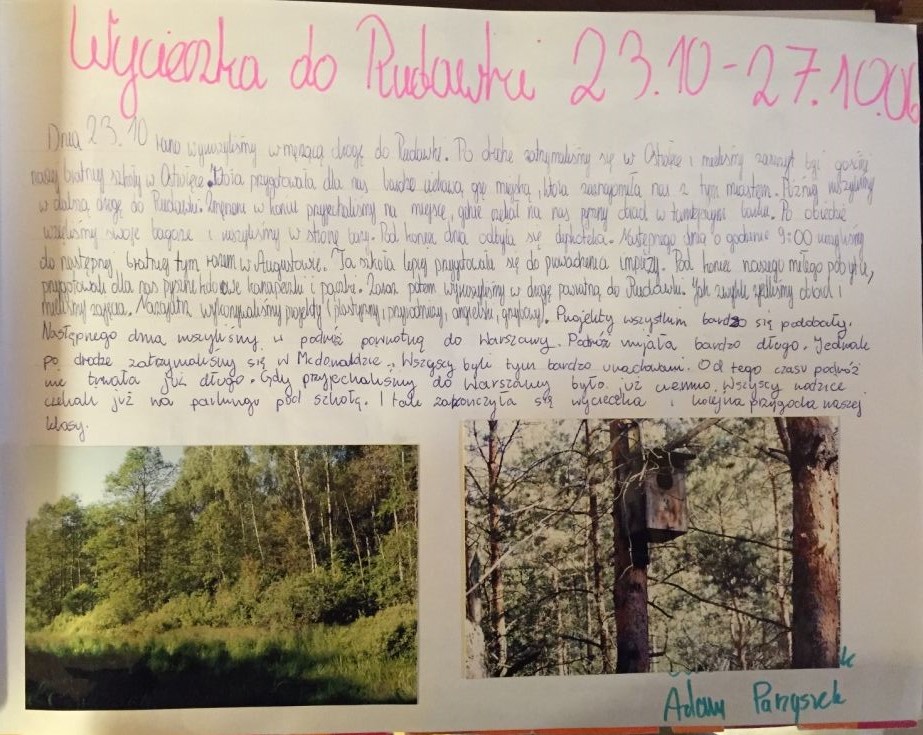 Wycieczka do Rudawki 23.10-27.10.06
Dnia 23.10 rano wyruszyliśmy w męczącą drogę do Rudawki. Po drodze zatrzymaliśmy się w i mieliśmy zaszczyt być gośćmi
naszej bratniej szkoły w która przygotowała dla nas bardzo ciekawą grę miejską, która zaznajomiła nas z tym miastem. Później ruszyliśmy
w dalszą drogę do Rudawki. Zmęczeni w końcu przyjechaliśmy na miejsce, gdzie czekał na nas pyszny obiad w tamtejszym Po obiedzie
wzięliśmy swoje bagaże i ruszyliśmy w stronę Pod koniec dnia odbyła się dyskoteka. Następnego dnia o godzinie 9:00
do następnej bratniej tym razem w Augustowie. Ta szkoła lepiej przygotowała się do prowadzenia imprezy. Pod koniec naszego miłego pobytu,
przygotowali dla nas pyszne kolorowe kanapeczki i Zaraz potem wyruszyliśmy w drogę powrotną do Rudawki. Jak zwykle zjedliśmy obiad i
mieliśmy zajęcia. Nazajutrz wykonywaliśmy projekty (plastyczny, przyrodniczy, angielski, grzybowy). Projekty wszystkim bardzo się podobały.
Następnego dnia ruszyliśmy w podróż powrotną do Warszawy. Podróż mijała bardzo długo. Jednak
po drodze zatrzymaliśmy się w Mcdonaldzie. Wszyscy byli tym bardzo uradowani. Od tego czasu podróż
nie trwała już długo. Gdy przyjechaliśmy do Warszawy było już ciemno. Wszyscy rodzice
czekali już na parkingu pod szkołą. I tak zakończyła się wycieczka i kolejna przygoda naszej
klasy.
Adam Parzyszek